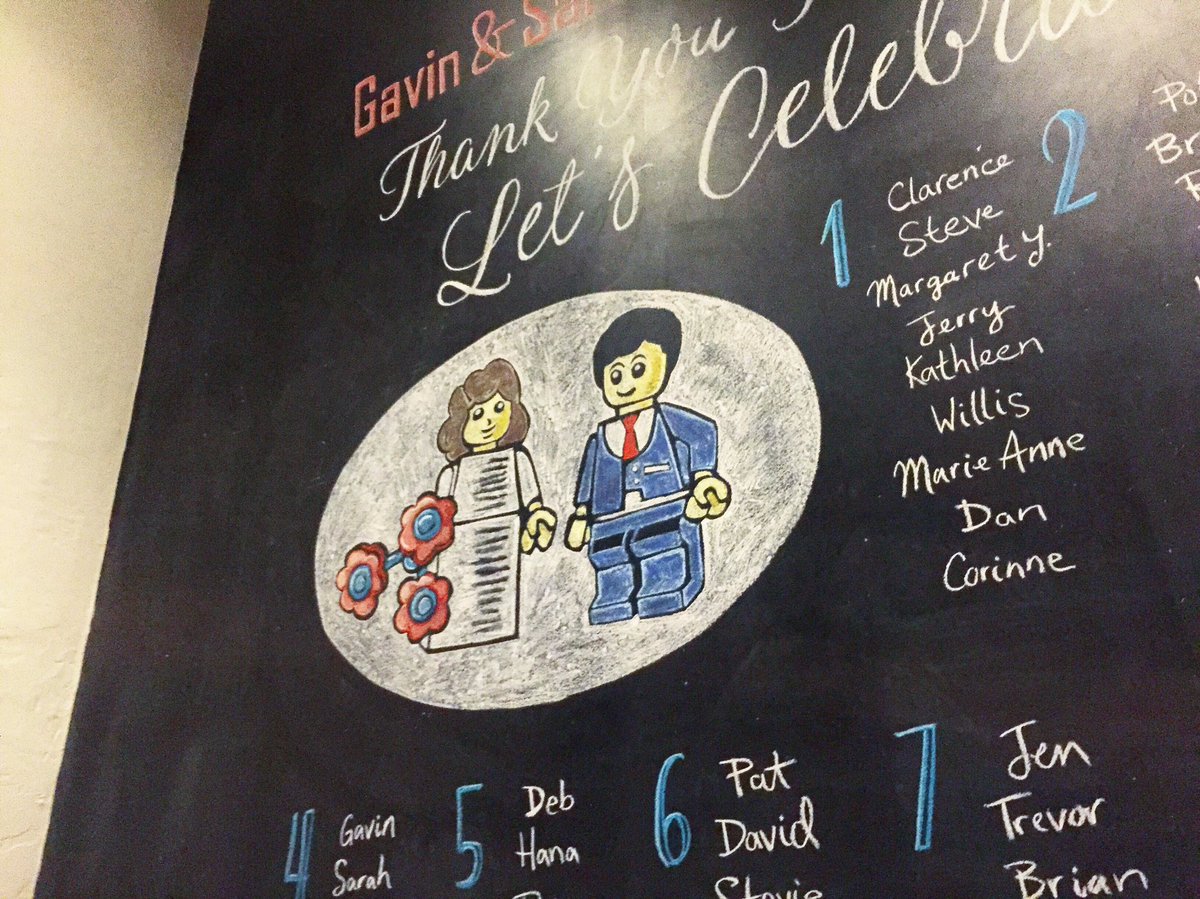 Gavin &
Thank You
Let's
1
Clarence
Steve
Margaret Y.
Jerry
Kathleen
Willis
Marie Anne
Dan
Corinne
2
4
Gavin
Sarah
5
Deb
Hana
6
Pat
David
Stovie
7
Jen
Trevor
Brian